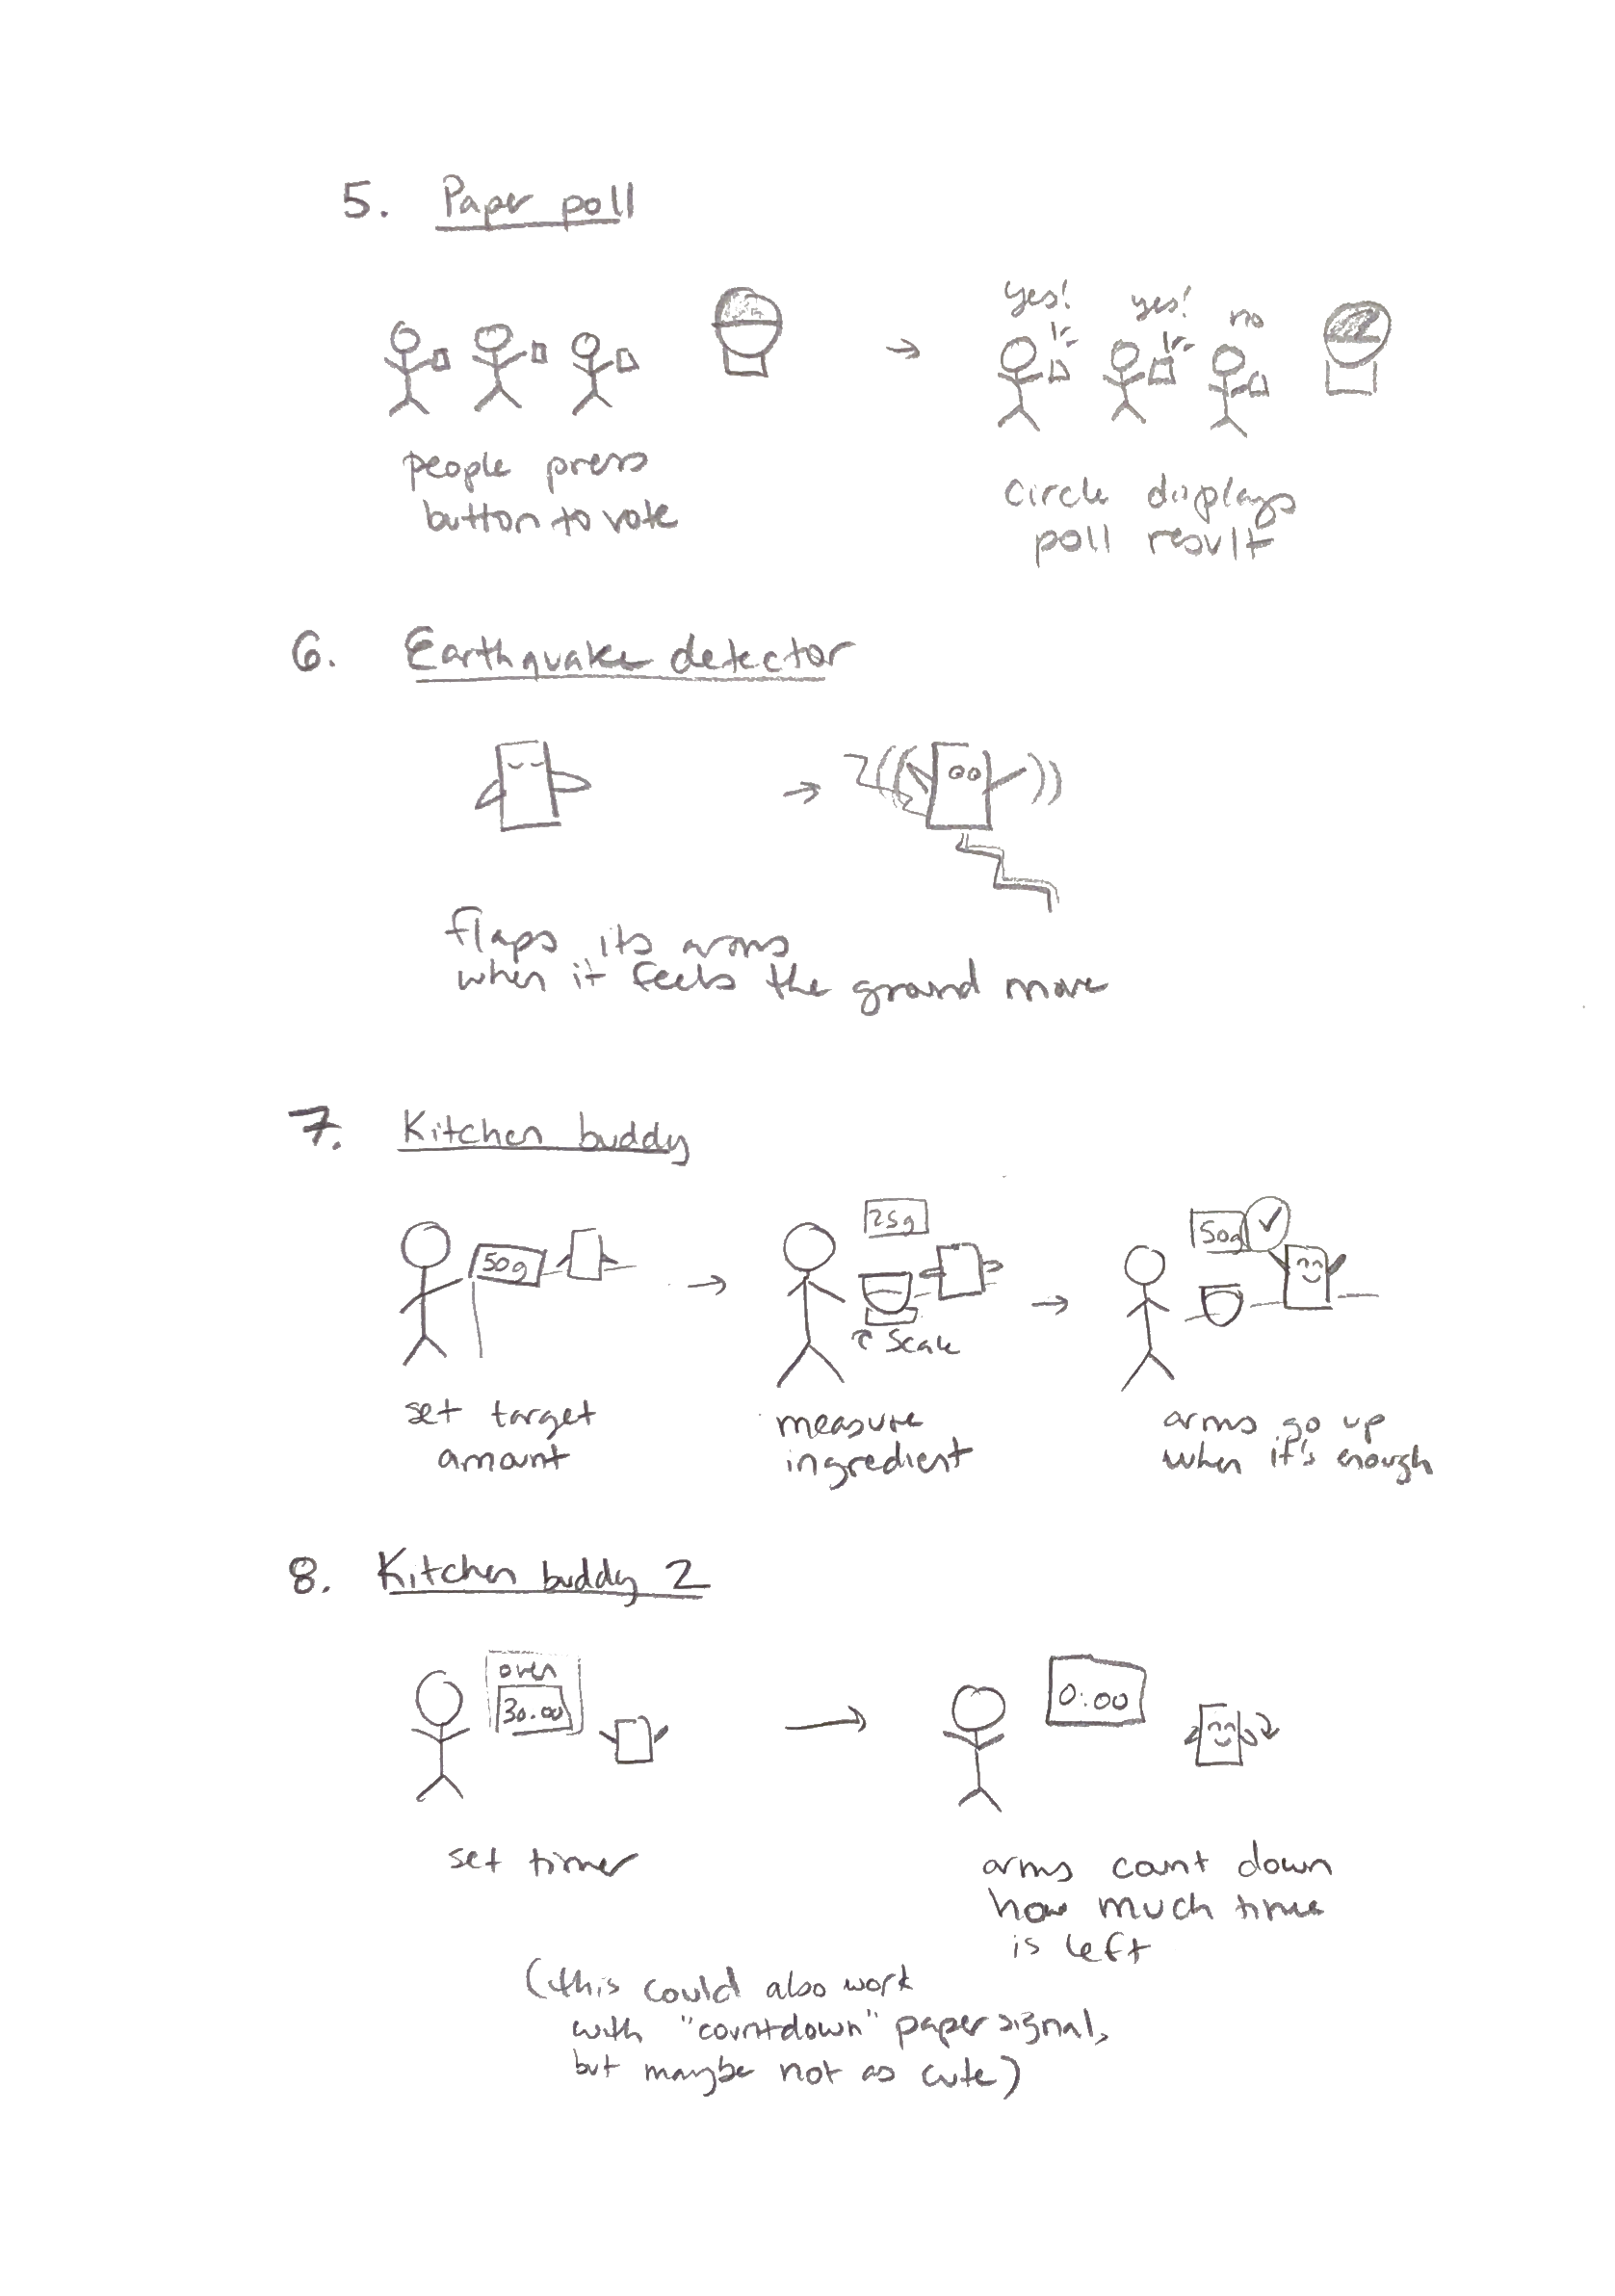 5. Paper poll
yes! yes! no
people press
button to vote
circle displays
poll result
6. Earthquake detector
flaps its arms
when it feels the ground move
7. Kitchen buddy
50g
25g
50g
scale
set target
amount
measure
ingredient
arms go up
when it's enough
8. Kitchen buddy 2
oven
30.00
0:00
set timer
arms count down
how much time
is left
(this could also work
with "countdown" paper signal,
but maybe not as cute)